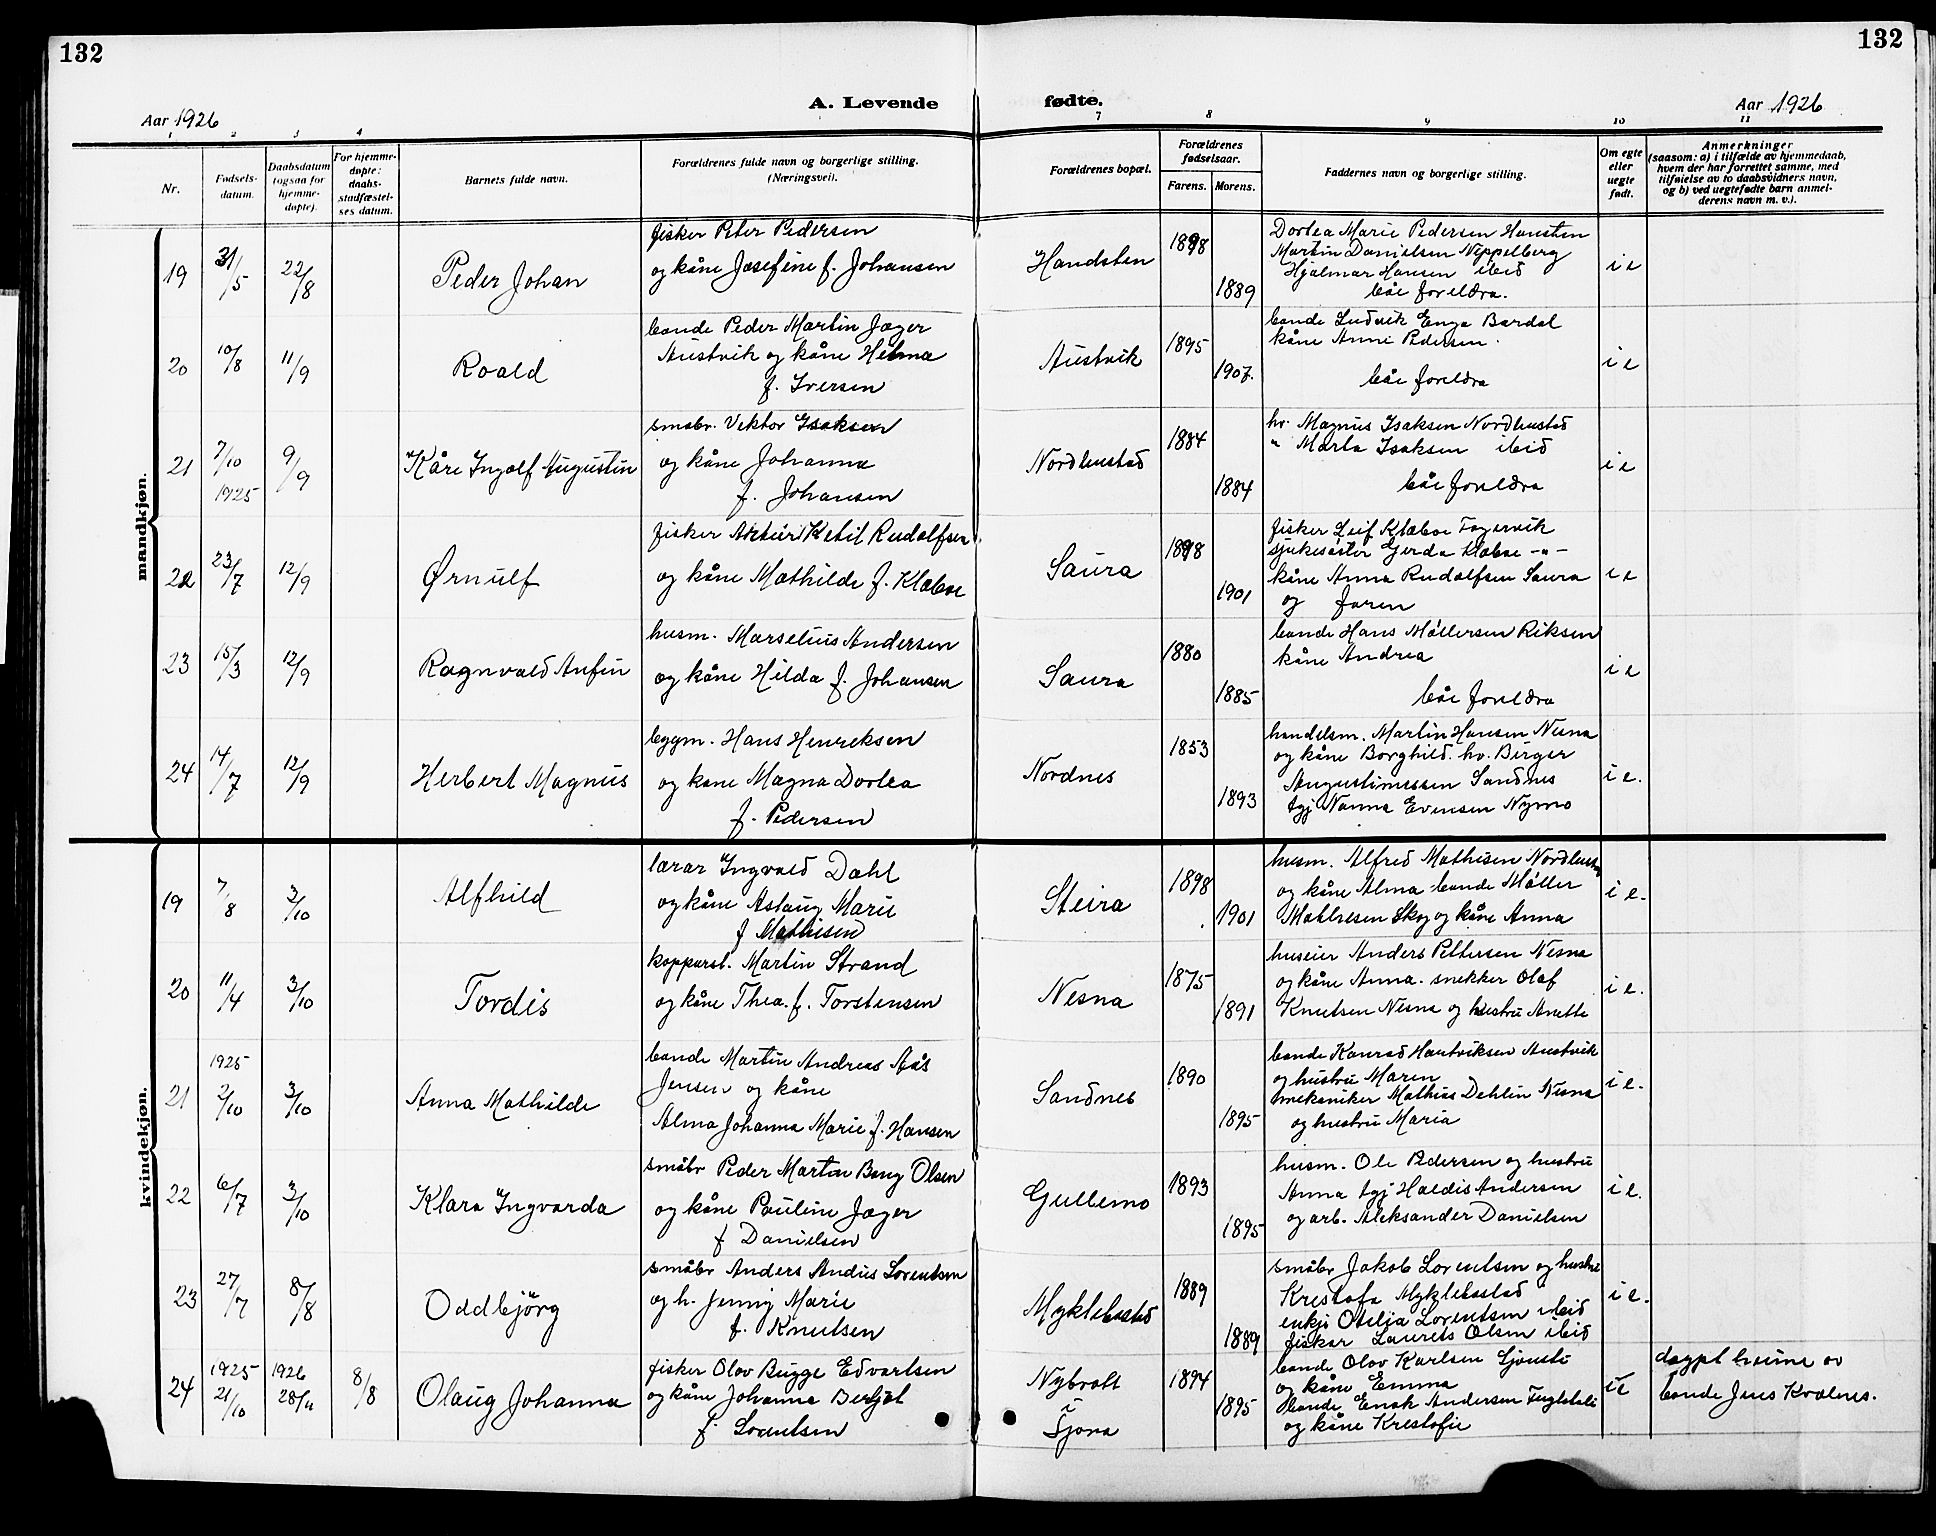 132
132
A. Levende fødte.
Aar 1926
Aar 1926
1 2 3 4 7 8 9 10 11
Nr.
Fødsels-
datum.
Daabsdatum
(ogsaa for
hjemme-
døpte).
For hjemme-
døpte:
daabs-
stadfæstel-
ses datum.
Barnets fulde navn.
Forældrenes fulde navn og borgerlige stilling.
(Næringsvei).
Forældrenes bopæl.
Forældrenes
fødselsaar.
Farens. Morens.
Faddernes navn og borgerlige stilling.
Om egte
eller
uegte
født.
Anmerkninger
(saasom: a) i tilfælde av hjemmedaab,
hvem der har forrettet samme, med
tilføielse av to daabsvidners navn,
og b) ved uegtefødte barn anmel-
derens navn m. v.).
mandkjøn.
19 31/5 22/8 Peder Johan
fisker Peter Pedersen
og kåne Josefine f. Johansen
Handsten 1898 1889
Dortea Marie Pedersen Hansten
Martin Danielsen Neppelberg
Hjalmar Hansen ibid
båe foreldra.
i e
20 10/8 11/9 Roald
bonde Peder Martin Jæger
Austvik og kåne Helma
f. Iversen
Austvik 1895 1907.
bonde Ludvik Enge Bardal
kåne Anne Pedersen.
båe foreldra
i e
21 7/10 1925 9/9 Kåre Ingolf Augustin
småbr. Vektor Isaksen
og kåne Johanna
f. Johansen
Nordhustad 1884 1884
hr. Magnus Isaksen Nordhustad
" Marta Isaksen ibid
båe foreldra
i e
22 23/7 12/9 Ørnulf
fisker Artur Ketil Rudolfsen
og kåne Mathilde f. Klæboe
Saura 1898 1901
fisker Leif Klæboe Fagervik
sjukesøster Gerda Klæboe -"-
kåne Anna Rudolfsen Saura
og faren
i e
23 15/3 12/9 Ragnvald Anfin
husm. Marselius Andersen
og kåne Hilda f. Johansen
Saura 1880 1885
bonde Hans Møllersen Riksen
kåne Andrea
båe foreldra
i e
24 14/7 12/9 Herbert Magnus
byggm. Hans Henreksen
og kåne Magna Dortea
f. Pedersen
Nordnes 1853 1893
handelsm. Martin Hansen Nesna
og kåne Borghild. hr. Birger
Augustinussen Sandnes
tgj Nanna Evensen Nymo
i e.
kvindekjøn.
19 7/8 3/10 Alfhild
lærar Ingvald Dahl
og kåne Aslaug Marie
f Mathisen
Steira 1898 1901
husm. Alfred Mathisen Nordhustad
og kåne Alma bonde Møller
Mathesen Skog og kåne Anna
i e.
20 11/4 3/10 Tordis
Martin Strand
og kåne Thea. f. Torstensen
Nesna 1875 1891
huseier Anders Pettersen Nesna
og kåne Anna. snekker Olaf
Knutsen Nesna og hustru Anette
i e.
21 1925 2/10 3/10 Anna Mathilde
bonde Martin Andreas Aas
Jensen og kåne
Alma Johanna Marie f. Hansen
Sandnes 1890 1895
bonde Konrad Hartviksen Austvik
og hustru Maren
mekaniker Mathias Dehlin Nesna
og hustru Maria
i e.
22 6/7 3/10 Klara Ingvarda
småbr Peder Martin Bang Olsen
og kåne Pauline Jæger
f Danielsen
Gullesmo 1893 1895
husm. Ole Pedersen og hustru
Anna tgj Haldis Andersen
og arb. Aleksander Danielsen
i e.
23 27/7 8/8 Oddbjörg
småbr Anders Andius Lorentsen
og h. Jenny Marie
f. Knutsen
Myklebustad 1889 1889
småbr Jakob Lorentsen og hustru
Krestofa Myklebustad
enkje Otelia Lorentsen ibid
fisker Laurets Olsen ibid
i e.
24 1925 21/10 1926 28/4 8/8 Olaug Johanna
fisker Olov Bugge Edvartsen
og kåne Johanna Berljot
f. Lorentsen
Nybrott
i
Sjona
1894 1895
bonde Olov Karlsen Sjonste
og kåne Emma
bonde Enok Andersen
og kåne Krestofie
ie
døypt heime av
bonde Jens Kvalnes.